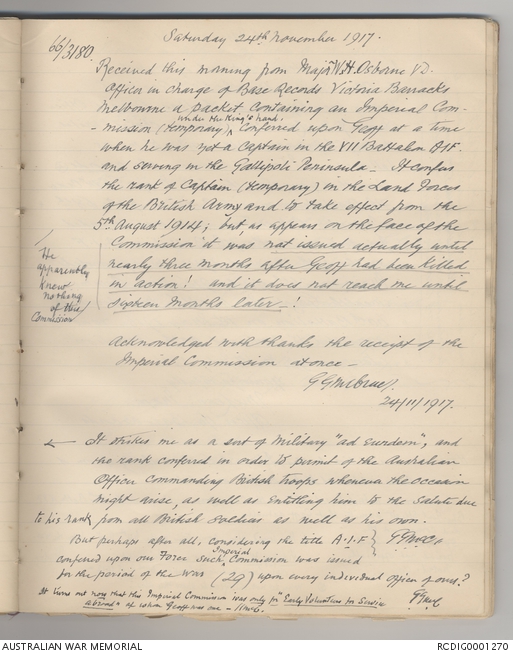 Saturday 24th November 1917.
66/3180.
Received this morning from Major W.H. Osborne V.D.
Officer in charge of Base Records Victoria Barracks
Melbourne a packet containing an Imperial Com-
under the King's hand.
- mission (temporary) ^ conferred upon Geoff at a time
when he was yet a Captain in the VII Battalion A.I.F.
and serving in the Gallipoli Peninsula - It confers
the rank of Captain (temporary) in the Land Forces
of the British Army and to take effect from the
5th August 1914; but as appears on the face of the
Commission it was not issued actually until
nearly three months after Geoff had been killed
in action! and it does not reach me until
sixteen months later -!
He
apparently
knew
nothing
of this
Commission
Acknowledged with thanks the receipt of the
Imperial Commission at once -
24/11/1917.
It strikes me as a sort of Military "ad eundem", and
the rank conferred in order to permit of the Australian
Officer Commanding British Troops whenever the occasion
might arise, as well as entitling him to the Salute due
to his rank from all British Soldiers as well as his own.
But perhaps after all, considering the title A.I.F
Imperial
conferred upon our Force such Commission was issued
for the period of the War (29) upon every individual officer of ours?
It turns out now that this Imperial Commission was only for "Early Volunteers for Service
abroad" of whom Geoff was one -
AUSTRALIAN WAR MEMORIAL
RCDIG0001270